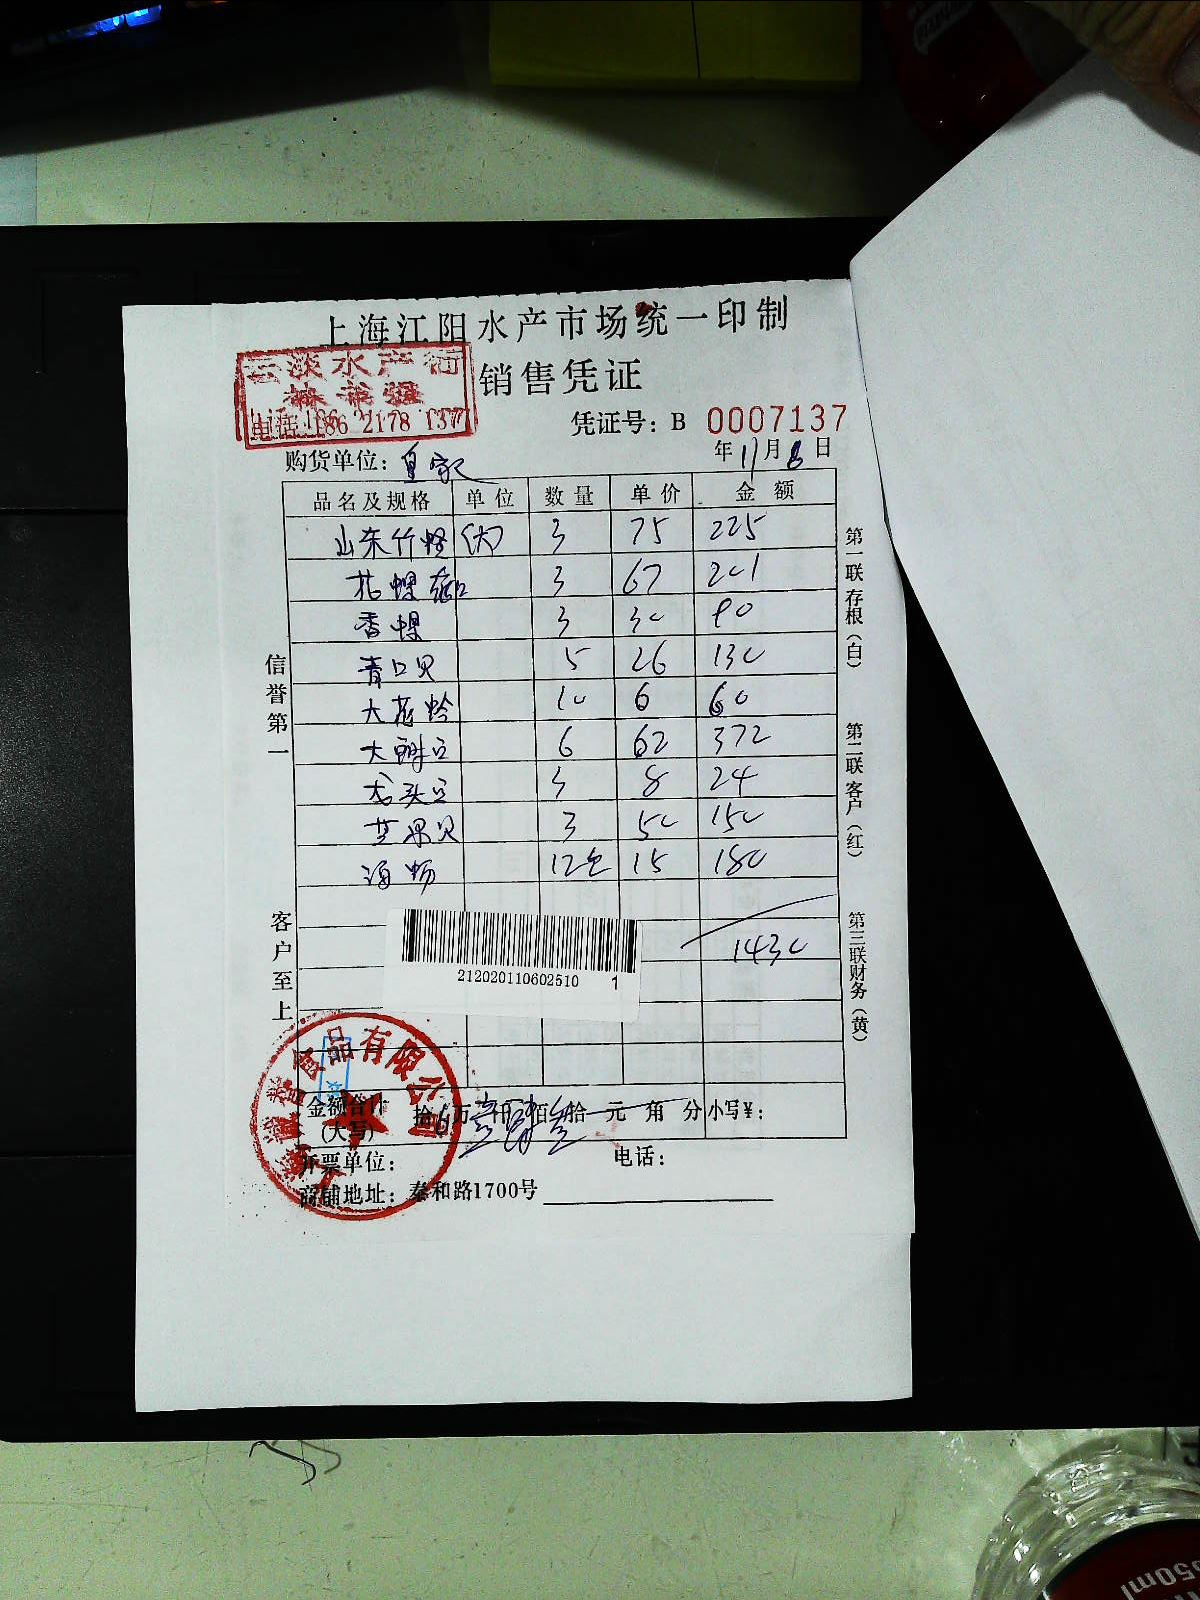 上海江阳水产市场统一印制
云淡水产行
销售凭证
电话:186 2178 1377
凭证号: B 0007137
购货单位: 皇家
年 11 月 8 日
品名及规格 单位 数量 单价 金额
山东竹蛏(大) 3 75 225
花螺 3 67 201
香螺 3 30 90
青口贝 5 26 130
大花蛤 10 6 60
大 6 62 372
3 8 24
芒果贝 3 50 150
海 12包 15 180
1430
信誉第一
客户至上
第一联存根(白)
第二联客户(红)
第三联财务(黄)
212020110602510 1
食品有限公司
金额合计(大写) 拾 万壹仟肆佰叁拾 元 角 分 小写¥:
开票单位: 电话:
商铺地址: 泰和路1700号
550ml